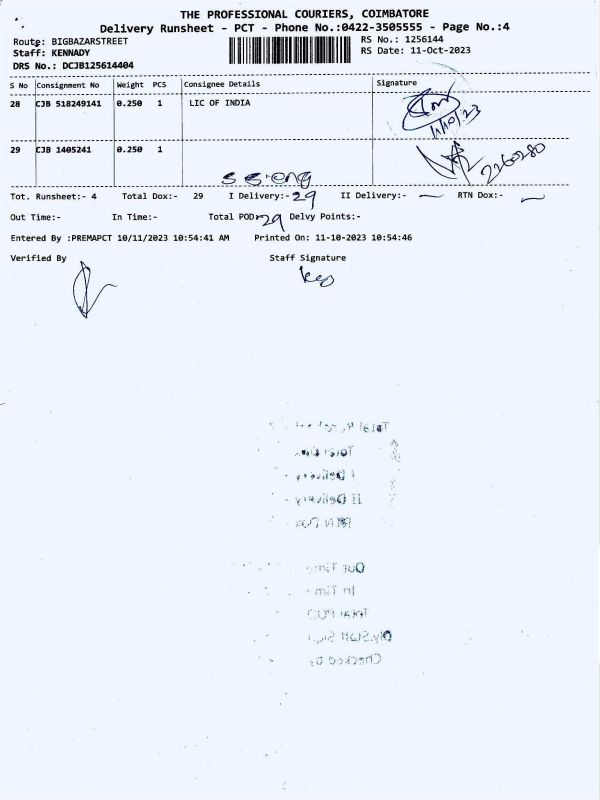 THE PROFESSIONAL COURIERS, COIMBATORE
Delivery Runsheet - PCT - Phone No.:0422-3505555 - Page No.:4
Route: BIGBAZARSTREET RS No.: 1256144
Staff: KENNADY RS Date: 11-Oct-2023
DRS No.: DCJB125614404
S No Consignment No Weight PCS Consignee Details Signature
28 CJB 518249141 0.250 1 LIC OF INDIA
11/10/23
29 CJB 1405241 0.250 1
2260280
Tot. Runsheet:- 4 Total Dox:- 29 I Delivery:- 29 II Delivery:- — RTN Dox:- —
Out Time:- In Time:- Total POD:- 29 Delvy Points:-
Entered By :PREMAPCT 10/11/2023 10:54:41 AM Printed On: 11-10-2023 10:54:46
Verified By Staff Signature
I Delivery
II Delivery
Out Time
In Time
Total POD
Checked by